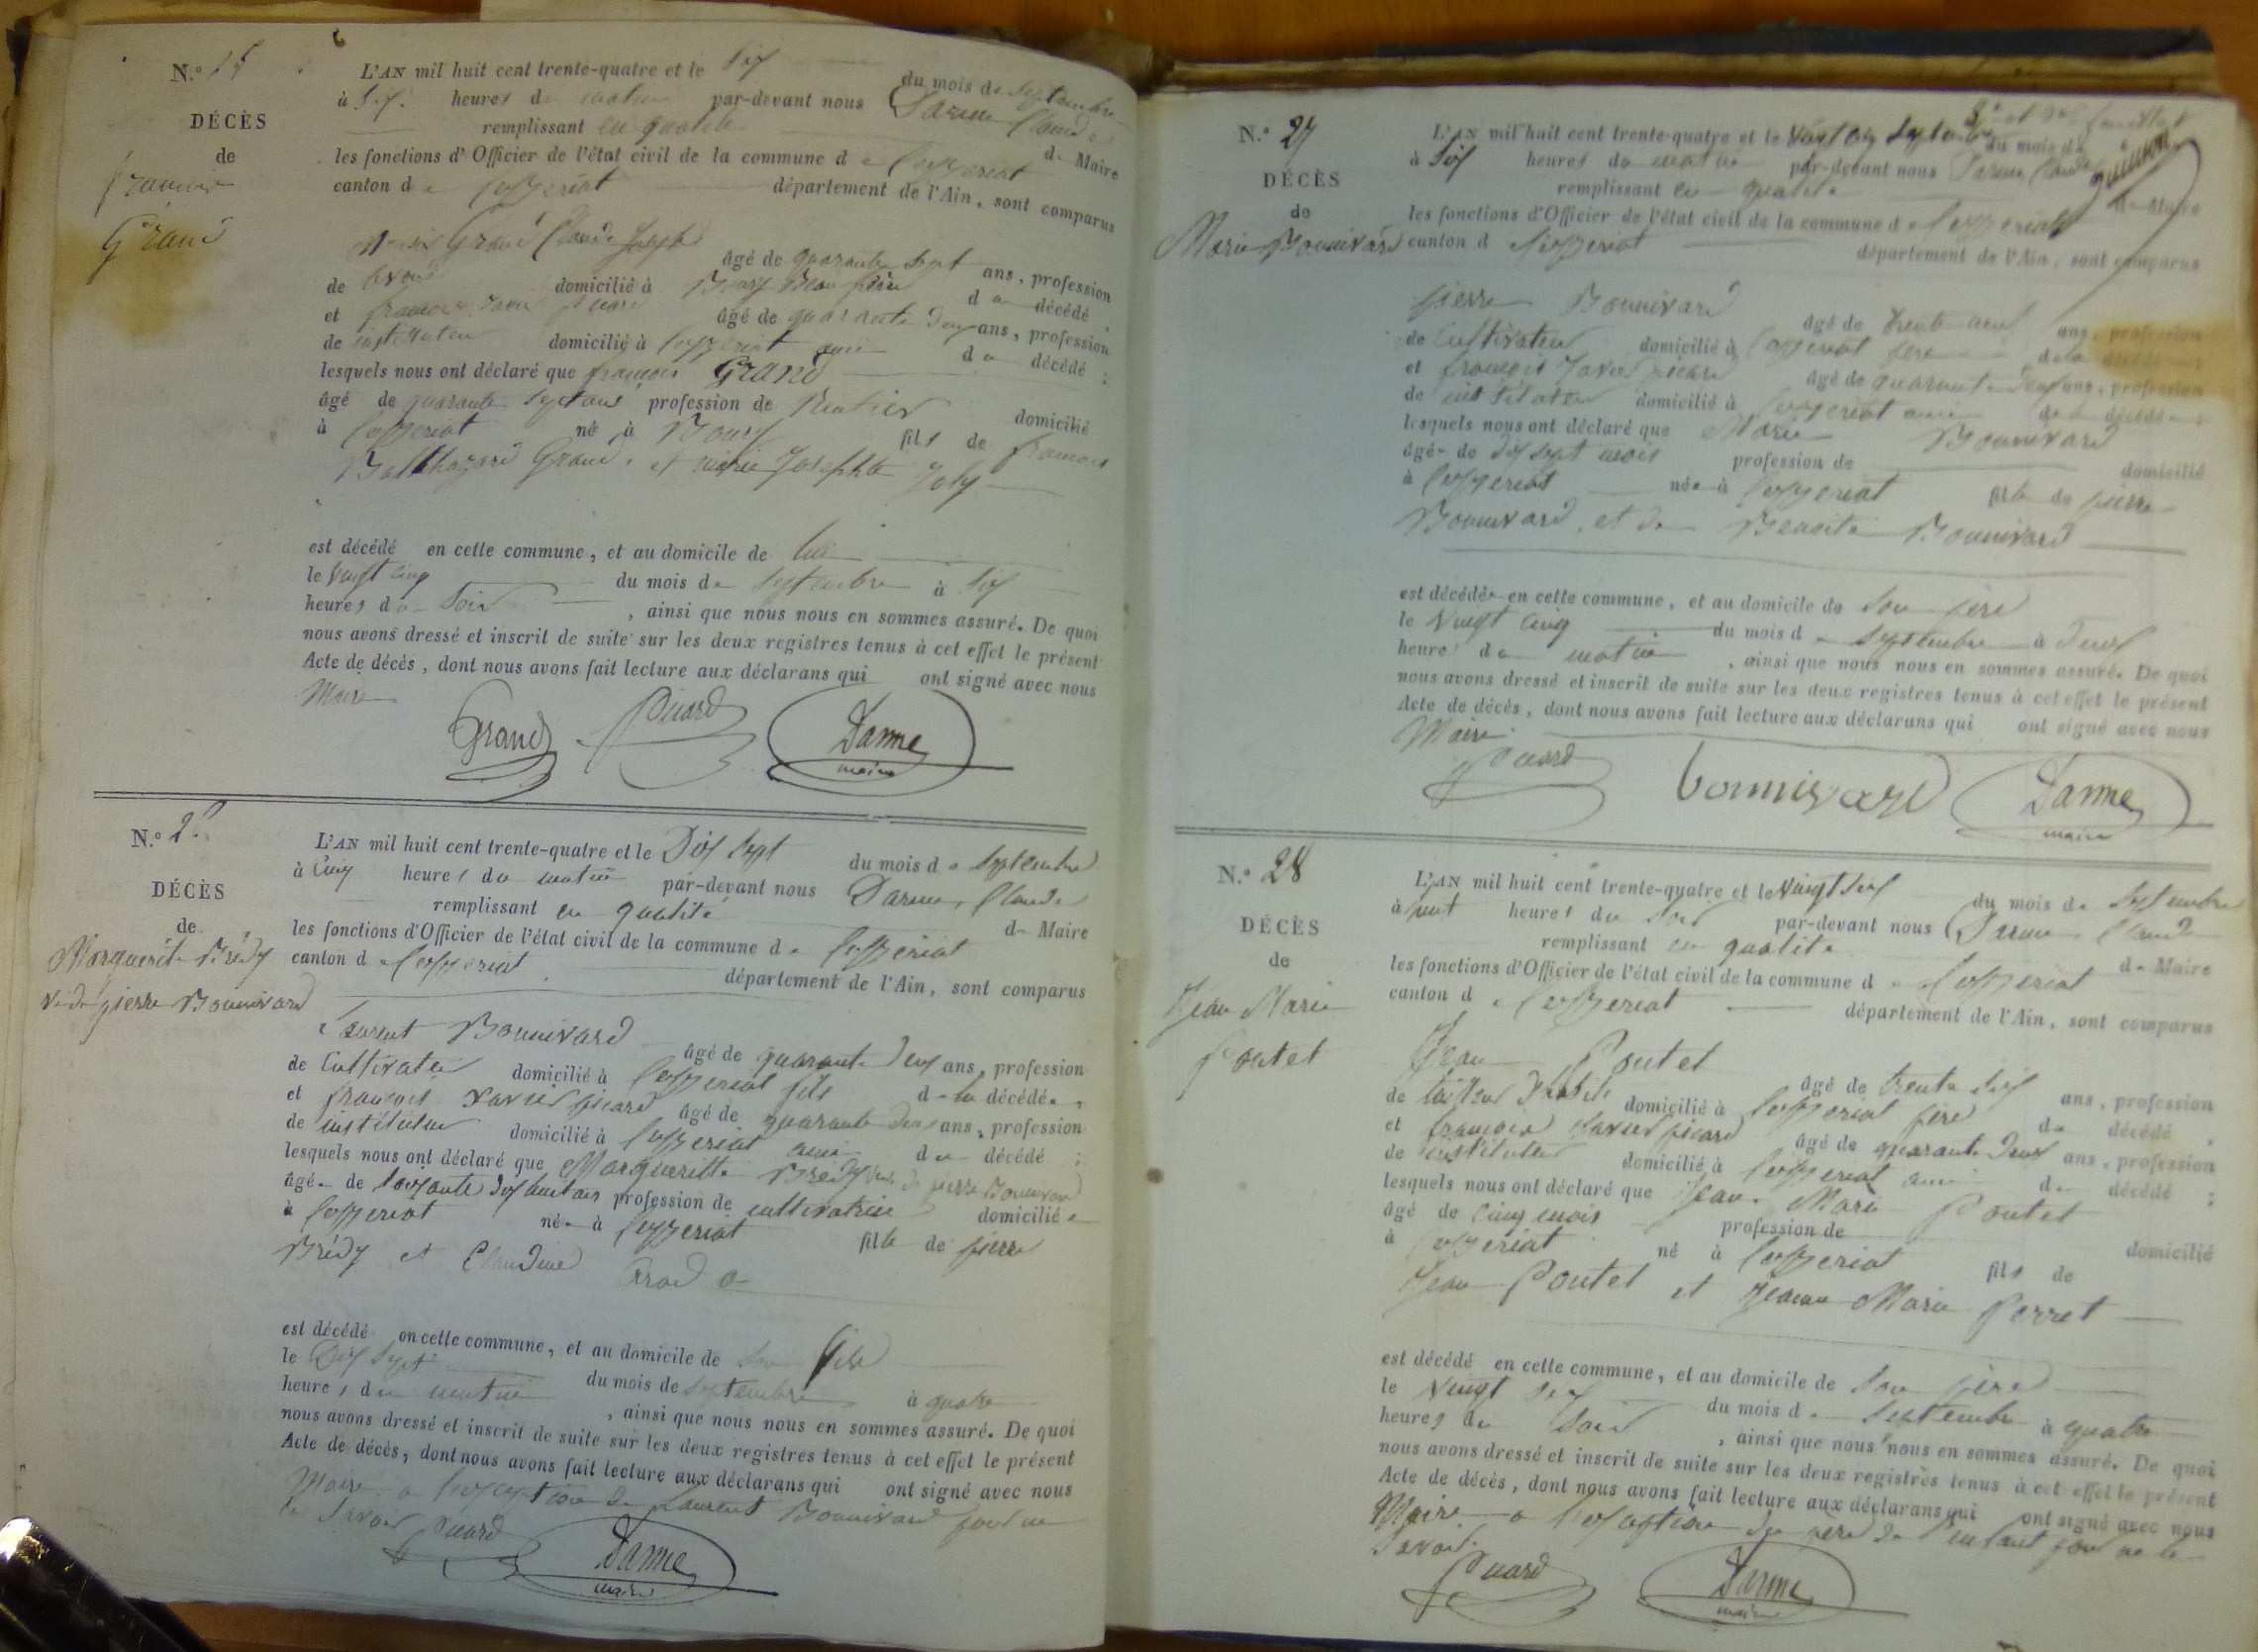 N.°
DÉCÈS
de
françois
Grand
L'AN mil huit cent trente-quatre et le Six du mois de Septembre
à Six heures du matin par-devant nous Darme Claude
remplissant en qualité de Maire
les fonctions d'Officier de l'état civil de la commune de Ceyzeriat
canton de Ceyzeriat département de l'Ain, sont comparus
Grand Claude Joseph âgé de quarante Sept ans, profession
de domicilié à Bourg Beau frère du décédé,
et françois Xavier picard âgé de quarante Deux ans, profession
de instituteur domicilié à Ceyzeriat ami du décédé ;
lesquels nous ont déclaré que françois Grand
âgé de quarante Sept ans profession de Rentier domicilié
à Ceyzeriat né à Bourg fils de françois
Balthazard Grand et marie Josephte Joly
est décédé en cette commune, et au domicile de lui
le Vingt cinq du mois de Septembre à Six
heures du Soir, ainsi que nous nous en sommes assuré. De quoi
nous avons dressé et inscrit de suite sur les deux registres tenus à cet effet le présent
Acte de décès, dont nous avons fait lecture aux déclarans qui ont signé avec nous
Maire
Grand Picard Darme
maire
N.°
DÉCÈS
de
Marguerite Brédy
Ve de pierre Bonnivard
L'AN mil huit cent trente-quatre et le Dix Sept du mois de Septembre
à Cinq heures du matin par-devant nous Darme, Claude
remplissant en qualité de Maire
les fonctions d'Officier de l'état civil de la commune de Ceyzeriat
canton de Ceyzeriat département de l'Ain, sont comparus
Laurent Bonnivard âgé de quarante Deux ans, profession
de Cultivateur domicilié à Ceyzeriat fils de la décédée,
et françois Xavier picard âgé de quarante Deux ans, profession
de instituteur domicilié à Ceyzeriat ami du décédé ;
lesquels nous ont déclaré que Marguerite Brédy Ve de pierre Bonnivard
âgée de Soixante Dix huit ans profession de cultivatrice domiciliée
à Ceyzeriat née à Ceyzeriat fille de pierre
Brédy et Claudine
est décédé en cette commune, et au domicile de Son fils
le Dix Sept du mois de Septembre à quatre
heures du matin, ainsi que nous nous en sommes assuré. De quoi
nous avons dressé et inscrit de suite sur les deux registres tenus à cet effet le présent
Acte de décès, dont nous avons fait lecture aux déclarans qui ont signé avec nous
Maire a l'exception de Laurent Bonnivard pour ne
le Savoir Picard Darme
maire
N.° 27
DÉCÈS
de
Marie Bonnivard
L'AN mil huit cent trente-quatre et le Vingt cinq Septembre du mois de
à Six heures du matin par-devant nous Darme, Claude
remplissant en qualité de Maire
les fonctions d'Officier de l'état civil de la commune de Ceyzeriat
canton d Ceyzeriat département de l'Ain, sont comparus
pierre Bonnivard âgé de trente neuf ans, profession
de Cultivateur domicilié à Ceyzeriat père de la décédée,
et françois Xavier picard âgé de quarante Deux ans, profession
de instituteur domicilié à Ceyzeriat ami de la décédée ;
lesquels nous ont déclaré que Marie Bonnivard
âgée de dix sept mois profession de domicilié
à Ceyzeriat née à Ceyzeriat fille de pierre
Bonnivard et de Benoite Bonnivard
est décédée en cette commune, et au domicile de Son père
le Vingt cinq du mois de Septembre à Deux
heures du matin, ainsi que nous nous en sommes assuré. De quoi
nous avons dressé et inscrit de suite sur les deux registres tenus à cet effet le présent
Acte de décès, dont nous avons fait lecture aux déclarans qui ont signé avec nous
Maire.
Picard bonnivard Darme
maire
N.° 28
DÉCÈS
de
Jean Marie
Poutet
L'AN mil huit cent trente-quatre et le Vingt Six du mois de Septembre
à huit heures du Soir par-devant nous Darme Claude
remplissant en qualité de Maire
les fonctions d'Officier de l'état civil de la commune de Ceyzeriat
canton de Ceyzeriat département de l'Ain, sont comparus
Jean Poutet âgé de trente Six ans, profession
de tailleur d'habits domicilié à Ceyzeriat père du décédé,
et françois Xavier picard âgé de quarante Deux ans, profession
de instituteur domicilié à Ceyzeriat ami du décédé ;
lesquels nous ont déclaré que Jean Marie Poutet
âgé de cinq mois profession de domicilié
à Ceyzeriat né à Ceyzeriat fils de
Jean Poutet et Marie Perret
est décédé en cette commune, et au domicile de Son père
le Vingt Six du mois de Septembre à quatre
heures du Soir, ainsi que nous nous en sommes assuré. De quoi
nous avons dressé et inscrit de suite sur les deux registres tenus à cet effet le présent
Acte de décès, dont nous avons fait lecture aux déclarans qui ont signé avec nous
Maire a l'exception du père de l'enfant pour ne le
Savoir.
Picard Darme
maire